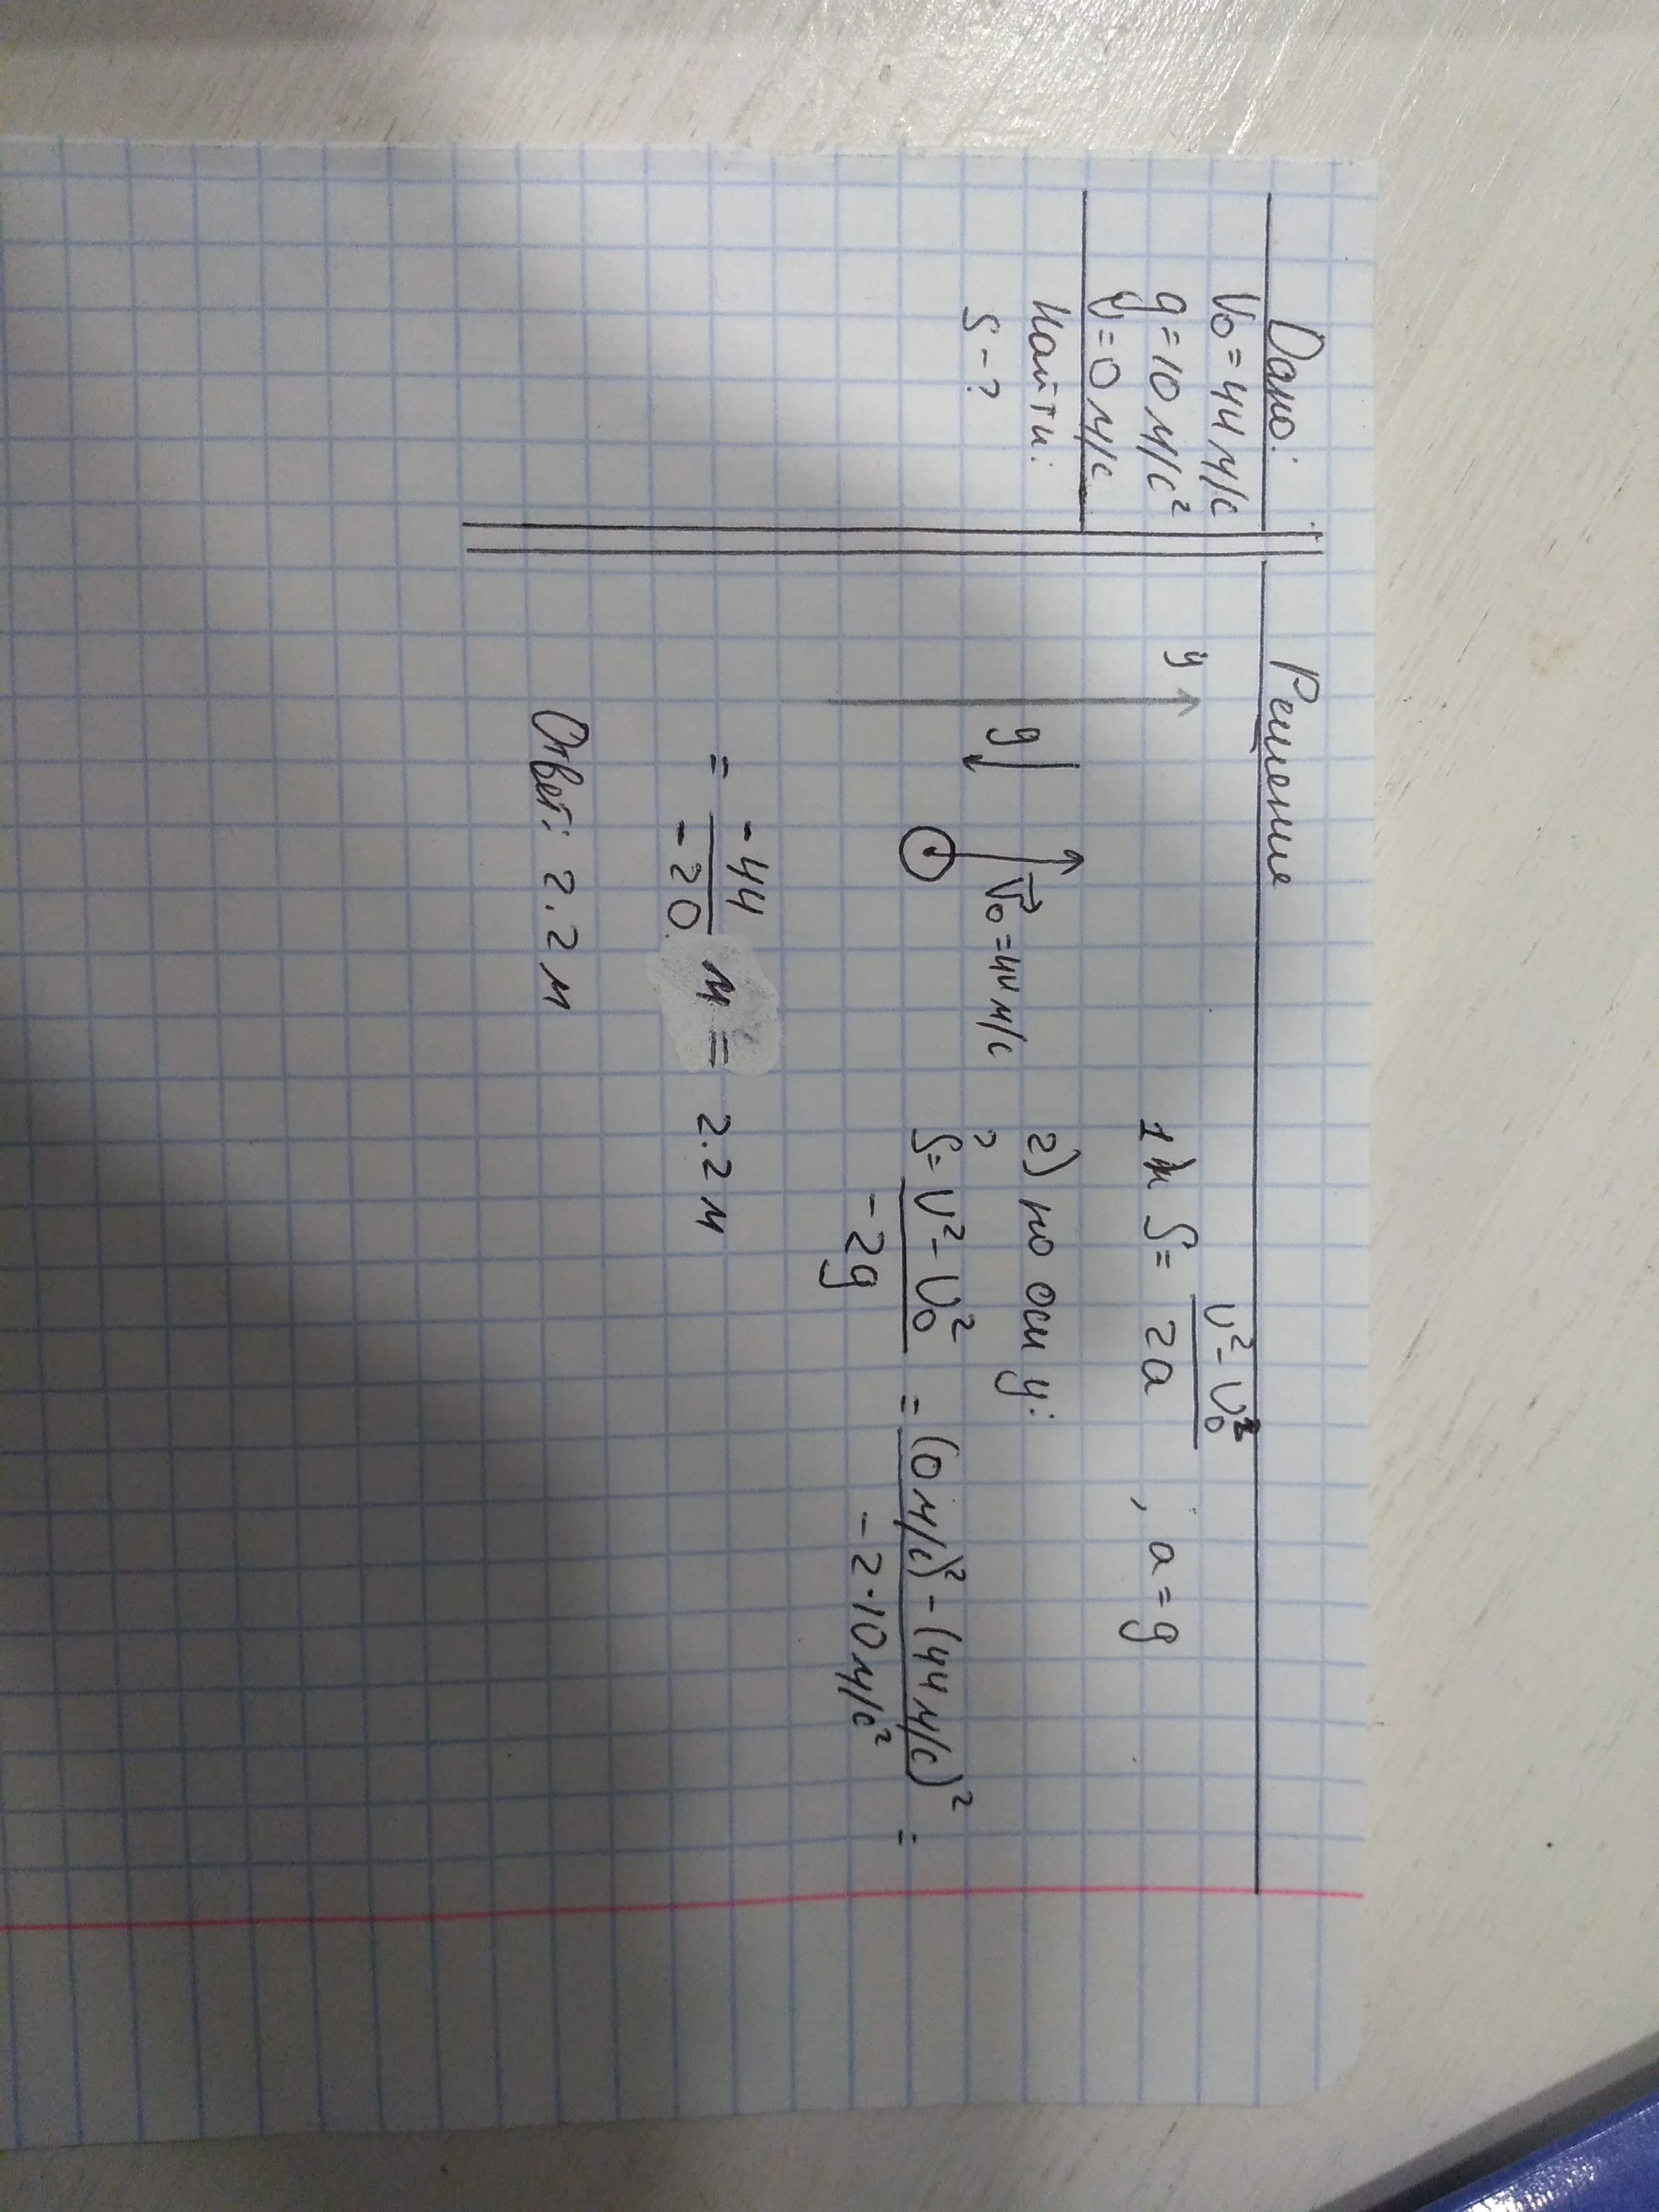 Дано:
V₀ = 44 м/с
g = 10 м/с²
V = 0 м/с
Найти:
S - ?
Решение
y
g
V⃗₀ = 44 м/с
S = (V² - V₀²) / 2a , a = g
2) по оси y:
S = (V² - V₀²) / -2g = ((0 м/с)² - (44 м/с)²) / (-2·10 м/с²) =
= -44 / -20 м = 2.2 м
Ответ: 2.2 м